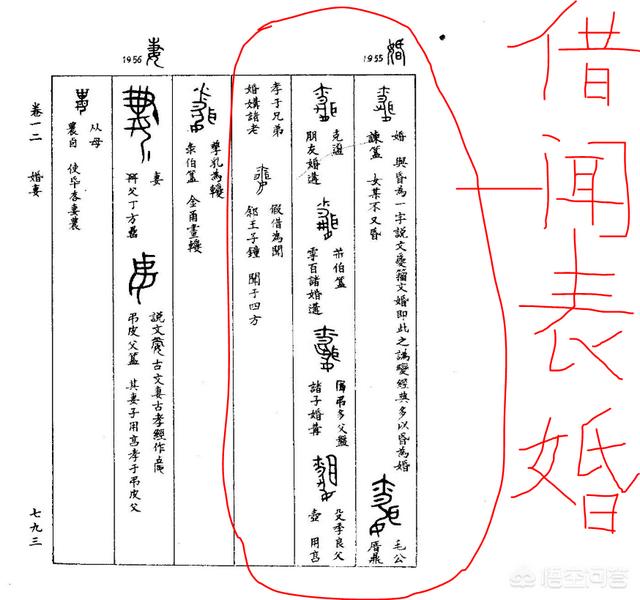 借闻表婚
婚 1955
婚 與昏為一字説文籀文婚即此之譌變經典多以昏為婚
諫簋 女某不又昏
毛公
厝鼎
克盨
朋友婚遘
伯簋
雩百諸婚遘
弔多父盤
諸子婚冓
殳季良父
壺 用亯
孝于兄弟
婚媾諸老
假借為聞
王子鐘 聞于四方
孳乳為
彔伯簋 金甬畫
妻 1956
妻
父丁方罍
説文古文妻古孝經作
弔皮父簋 其妻子用亯孝于弔皮父
从母
農卣 使妻農
卷一二 婚妻
七九三
悟空问答